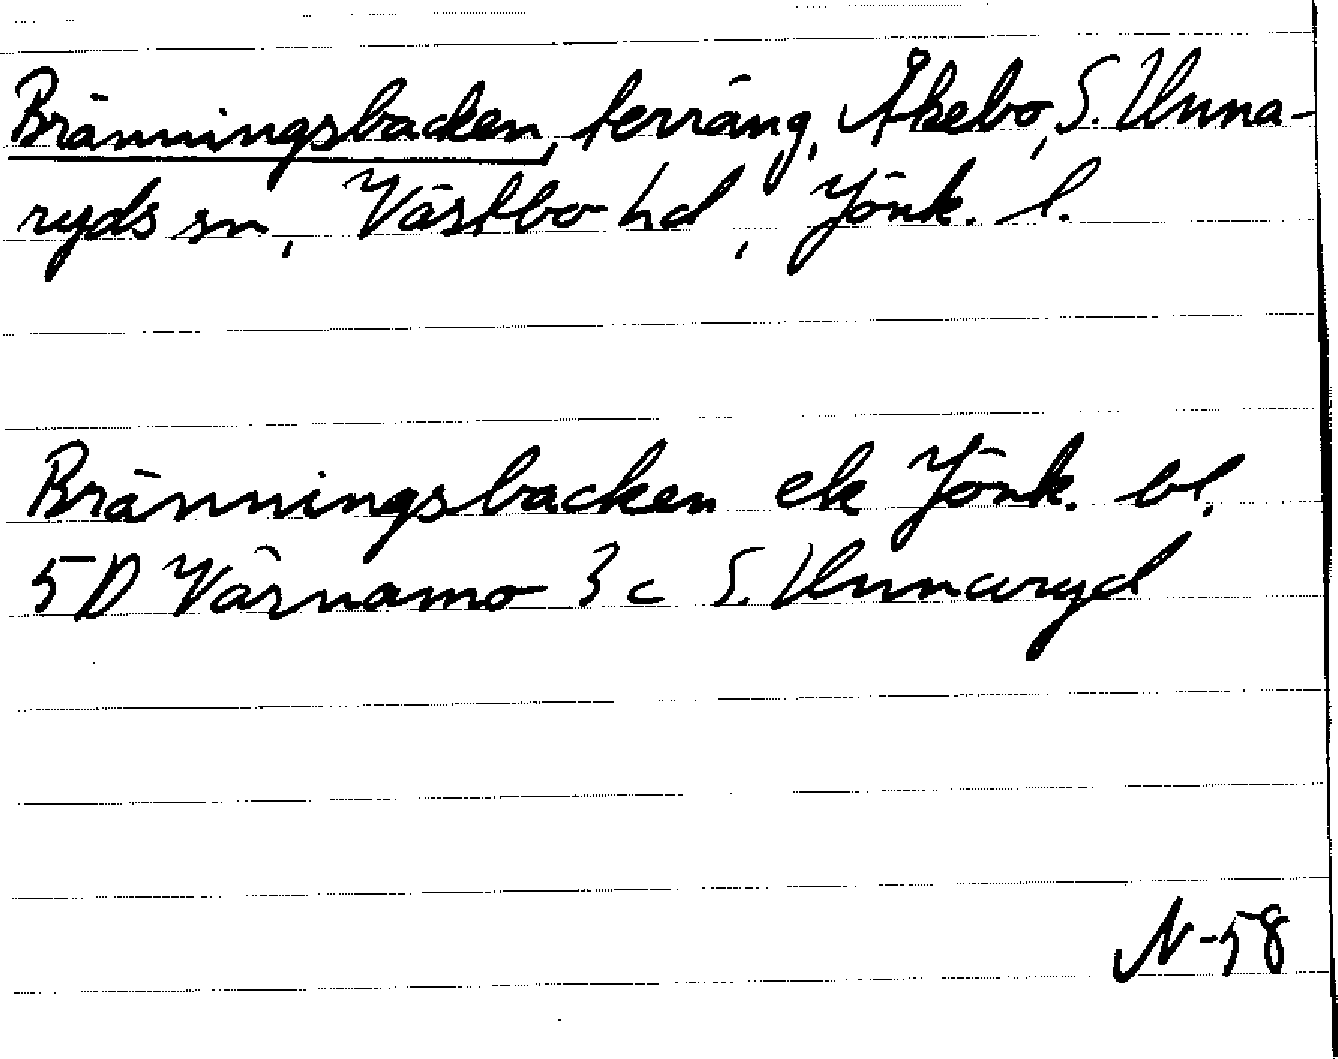 Bränningsbacken, terräng, Åkebo, S. Unna-
ryds sn, Västbo hd, Jönk. l.
Bränningsbacken ek Jönk. bl.
5D Värnamo 3c S. Unnaryd
N-58